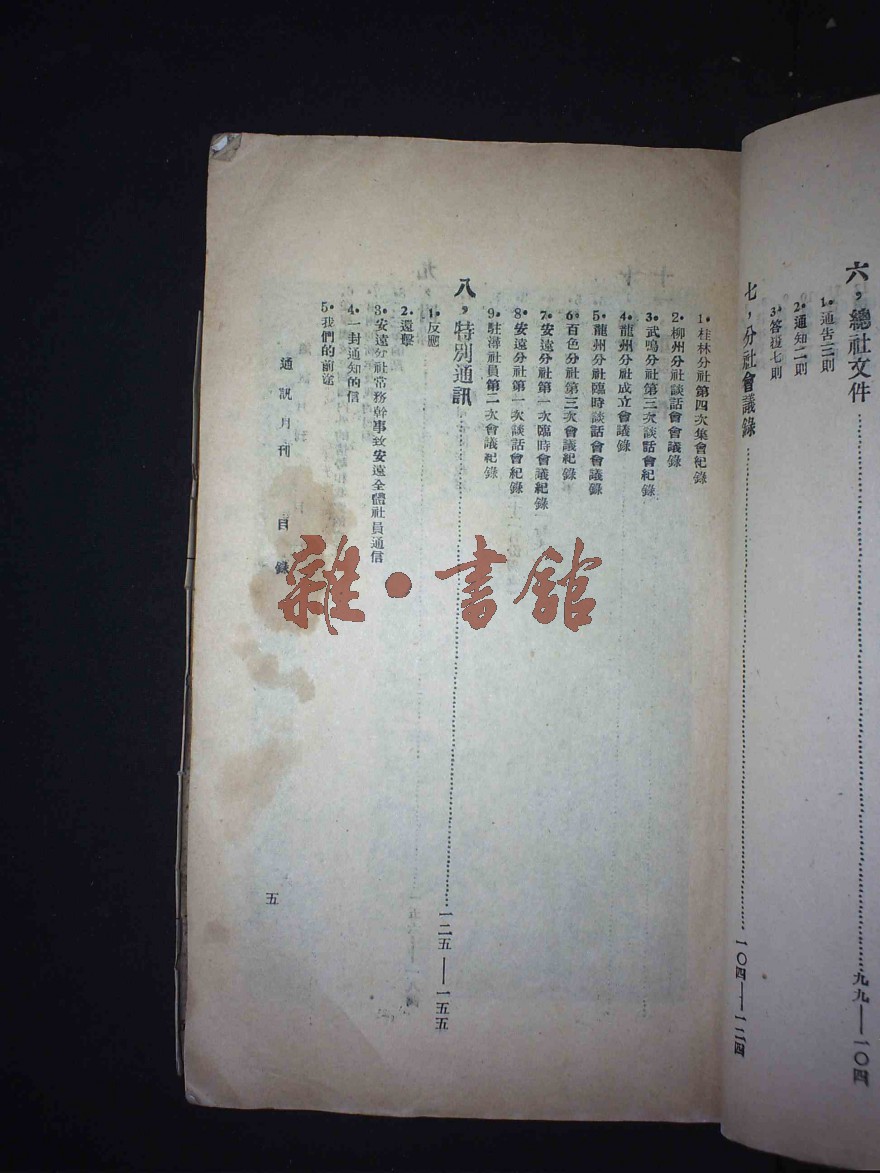 六，總社文件……九九——一〇四
1.通告三則
2.通知二則
3.答覆七則
七，分社會議錄……一〇四——一二四
1.桂林分社第四次集會紀錄
2.柳州分社談話會會議錄
3.武鳴分社第三次談話會紀錄
4.龍州分社成立會議錄
5.龍州分社臨時談話會會議錄
6.百色分社第三次會議紀錄
7.安遠分社第一次臨時會議紀錄
8.安遠分社第一次談話會紀錄
9.駐潯社員第二次會議紀錄
八，特別通訊……一二五——一五五
1.反應
2.還擊
3.安遠分社常務幹事致安遠全體社員通信
4.一封通知的信
5.我們的前途
通訊月刊 目錄
五
雜·書館